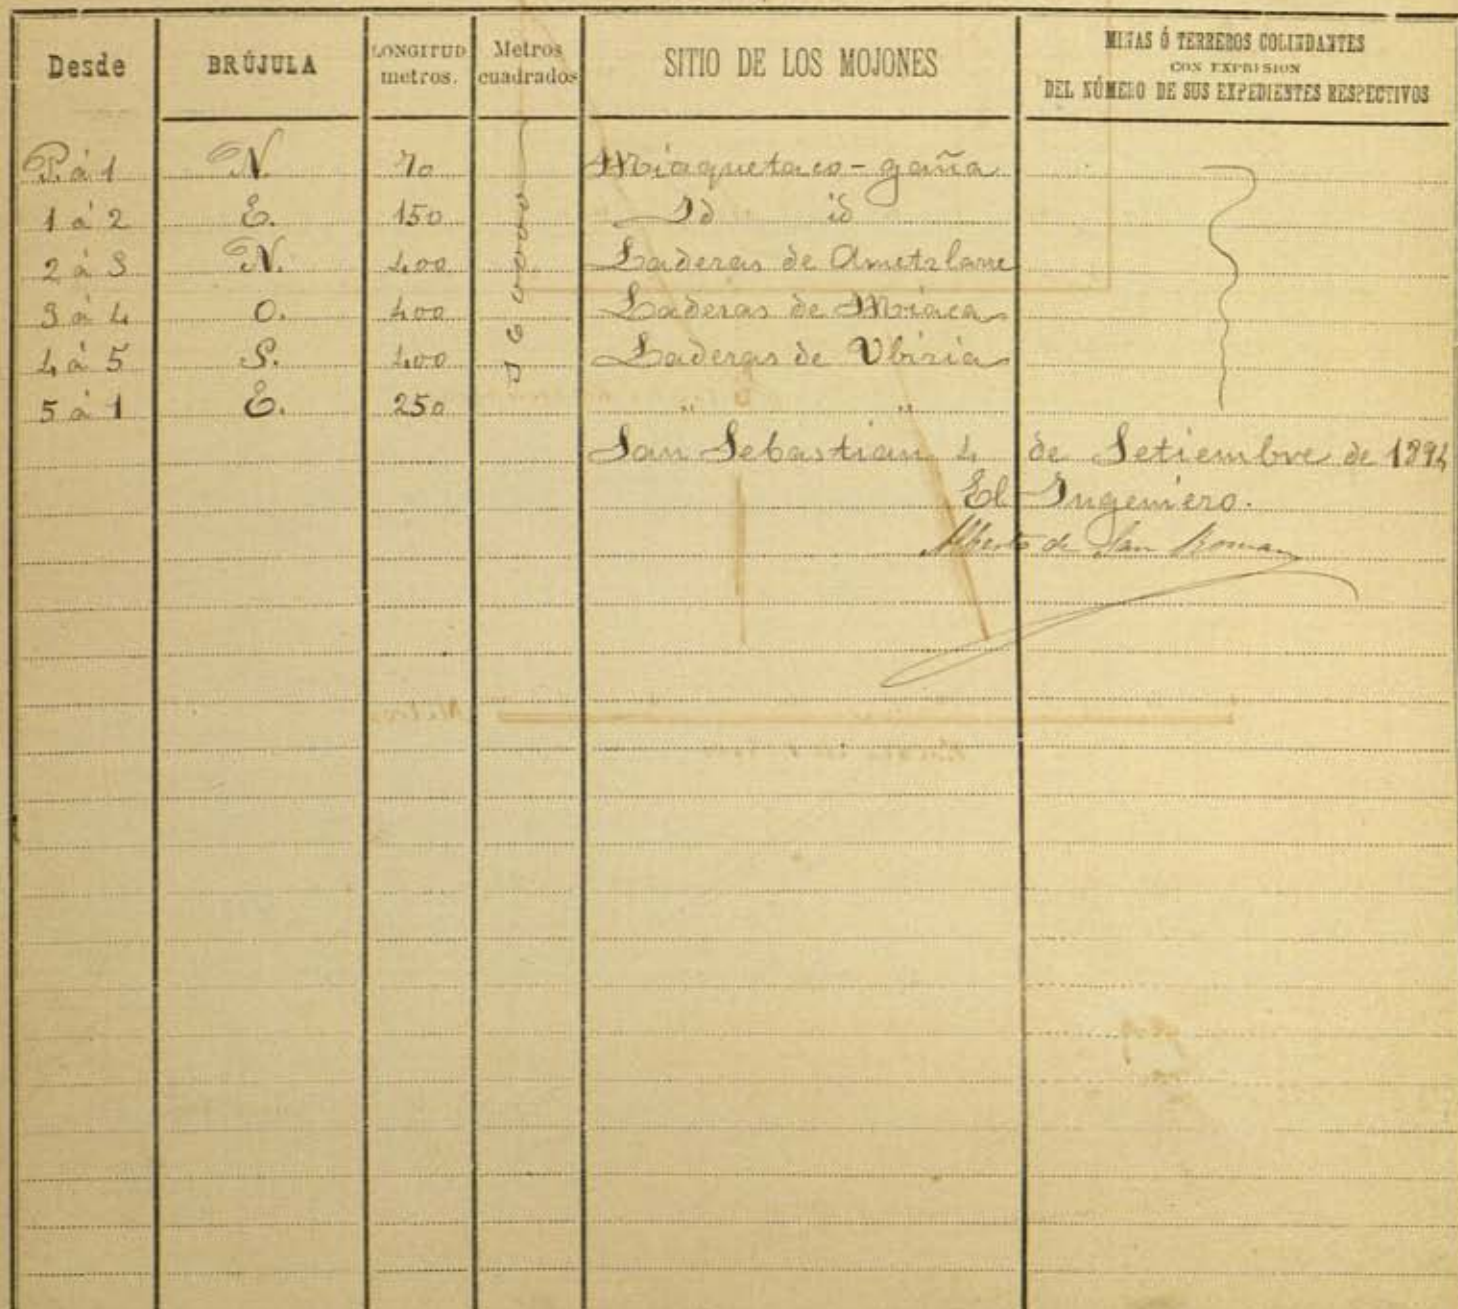 Desde BRÚJULA LONGITUD metros. Metros cuadrados SITIO DE LOS MOJONES MINAS Ó TERREROS COLINDANTES CON EXPRESION DEL NÚMERO DE SUS EXPEDIENTES RESPECTIVOS
P. á 1 N. 70 Miaquetaco-gaña
1 á 2 E. 150 Id id
2 á 3 N. 400 Laderas de
3 á 4 O. 400 Laderas de Miaca
4 á 5 S. 400 Laderas de Ubiria
5 á 1 E. 250 " "
160000
San Sebastian 4 de Setiembre de 1894
El Ingeniero.
Alberto de San Roman